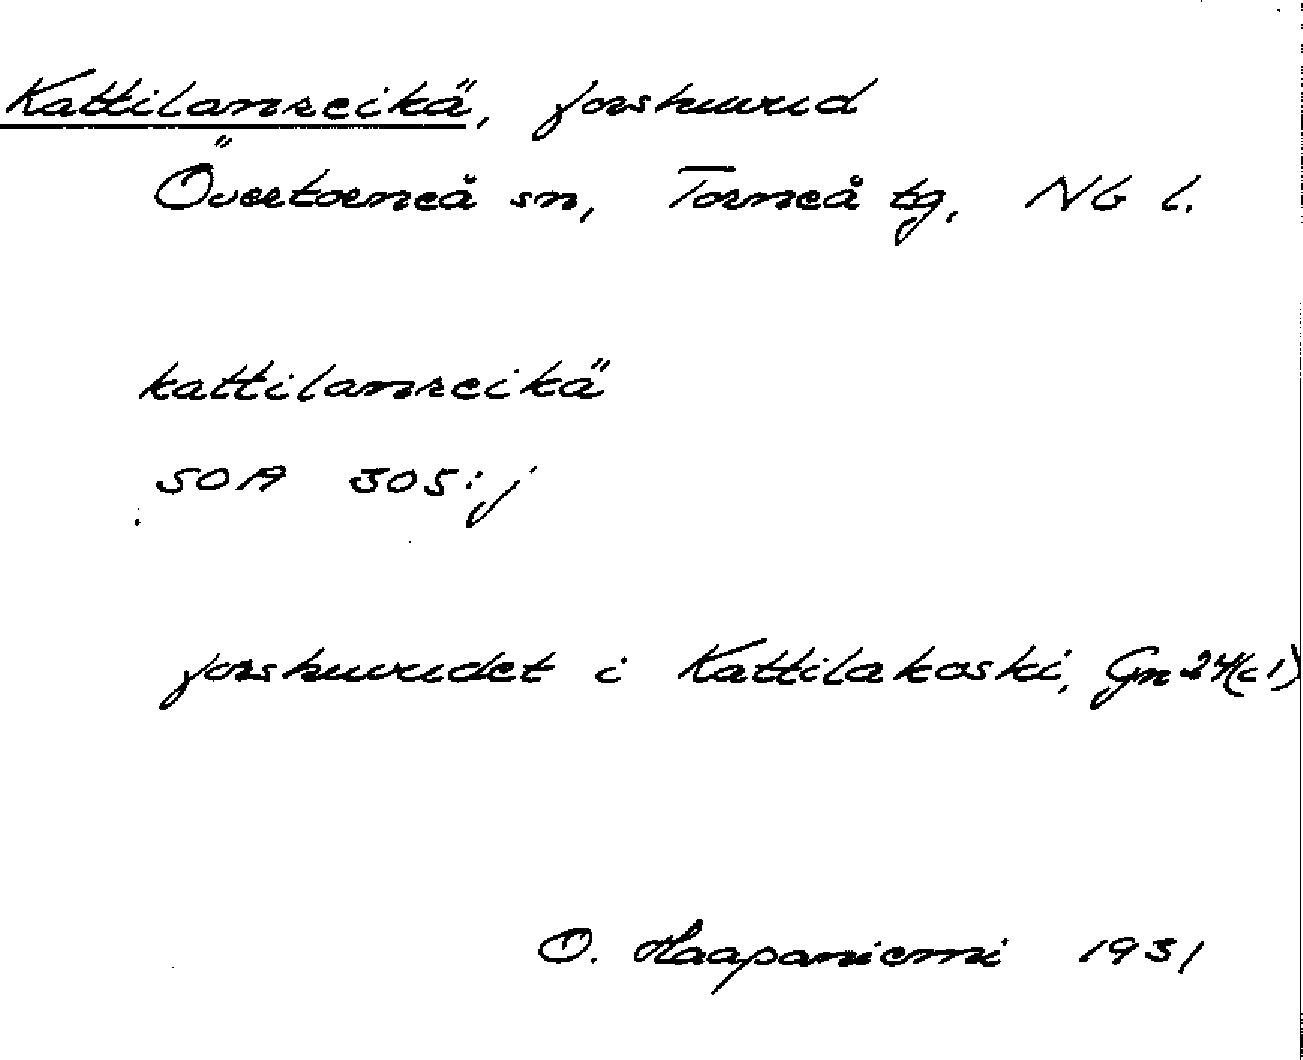 Kattilanreikä, forshuvud
Övertorneå sn, Torneå tg, Nb l.
kattilanreikä
SOA 305:j
forshuvudet i Kattilakoski, Gn 24(c1)
O. Haapaniemi 1931